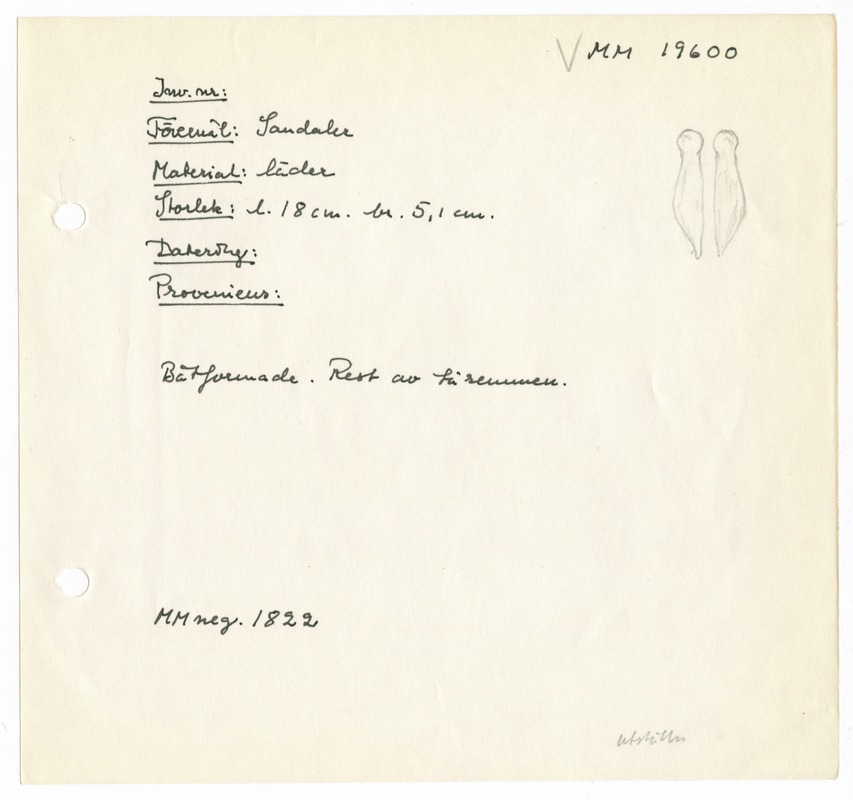 V MM 19600
Inv. nr:
Föremål: Sandaler
Material: läder
Storlek: l. 18 cm. br. 5,1 cm.
Datering:
Proveniens:
Båtformade. Rest av tåremmen.
MM neg. 1822
utställn